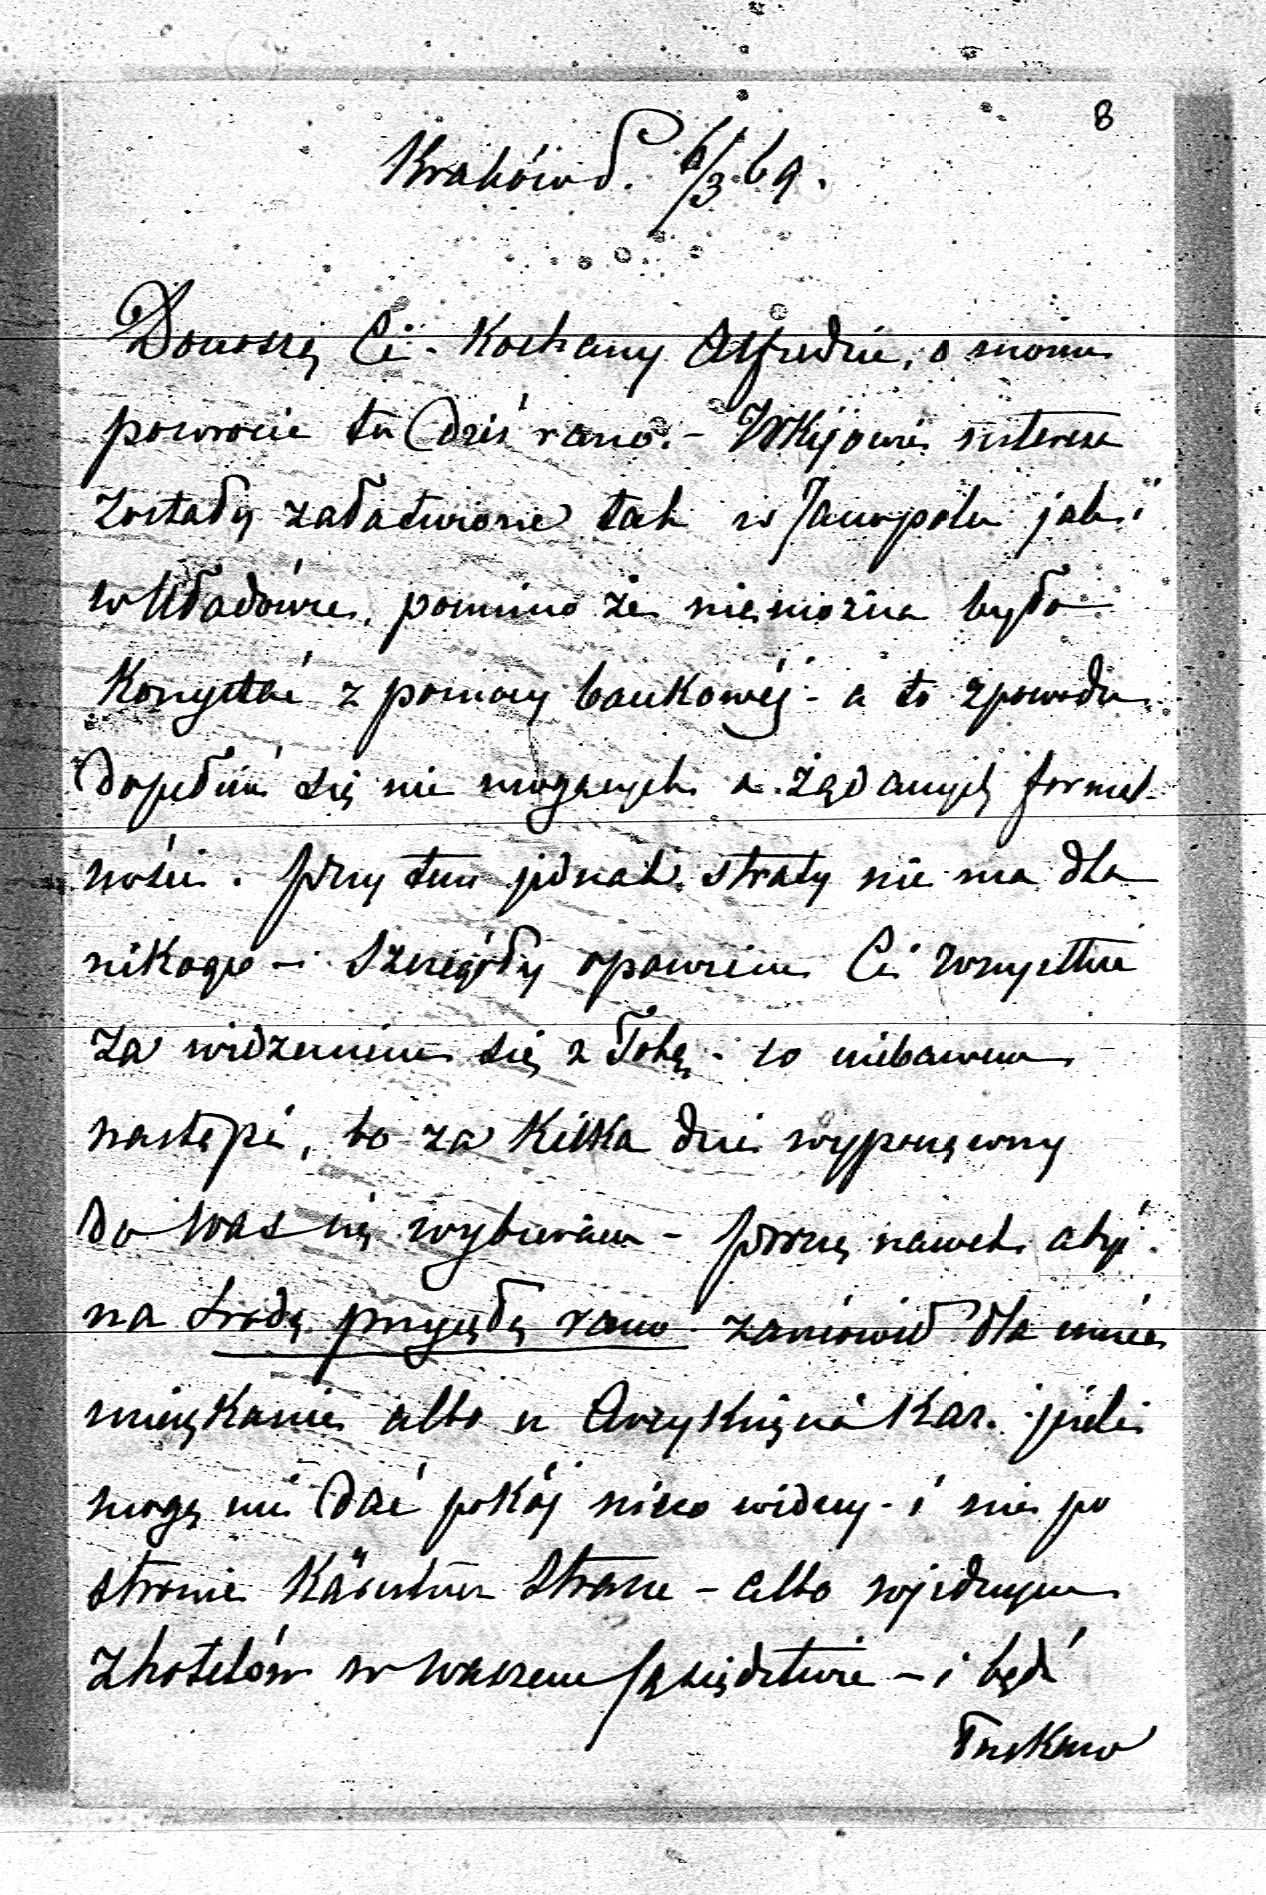 8
Kraków d. 6/3 69.
Donoszę Ci - Kochany Alfredzie, o moim
powrocie tu dziś rano. - W Kijowie interesa
zostały załatwione tak w Janopolu jak i
w Uładówce, pomimo że niemożna było
Korzystać z pomocy bankowéj - a to zpowodu
dopełnić się nie mogących a żądanych formal-
ności. przy tem jednak straty nie ma dla
nikogo - Szczegóły opowiem Ci wszystkie
za widzeniem się z Tobą - co niebawem
nastąpi, bo za Kilka dni wypocząwszy
do was się wybieram - proszę nawet abyś
na środę przyszłą rano zamówił dla mnie
mieszkanie albo u Arcyksięcia Kar. jeżeli
mogą mi dać pokój nieco widny - i nie po
stronie Kärntner Strasse - albo wjednym
z hotelów w waszem sąsiedztwie - i bądź
łaskaw